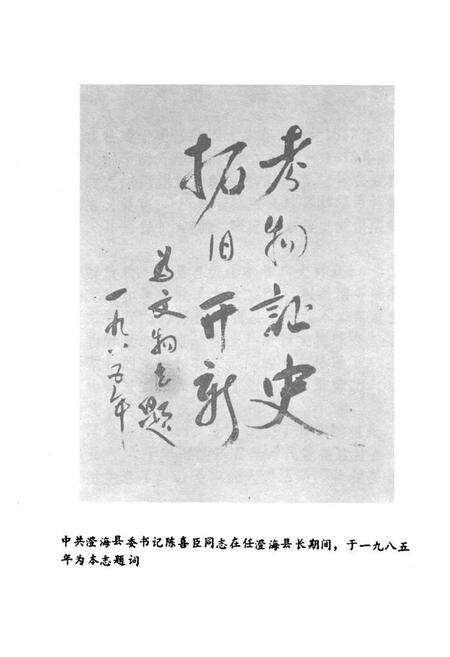 考物証史
拓旧开新
为文物志题
一九八五年
中共澄海县委书记陈喜臣同志在任澄海县长期间，于一九八五
年为本志题词